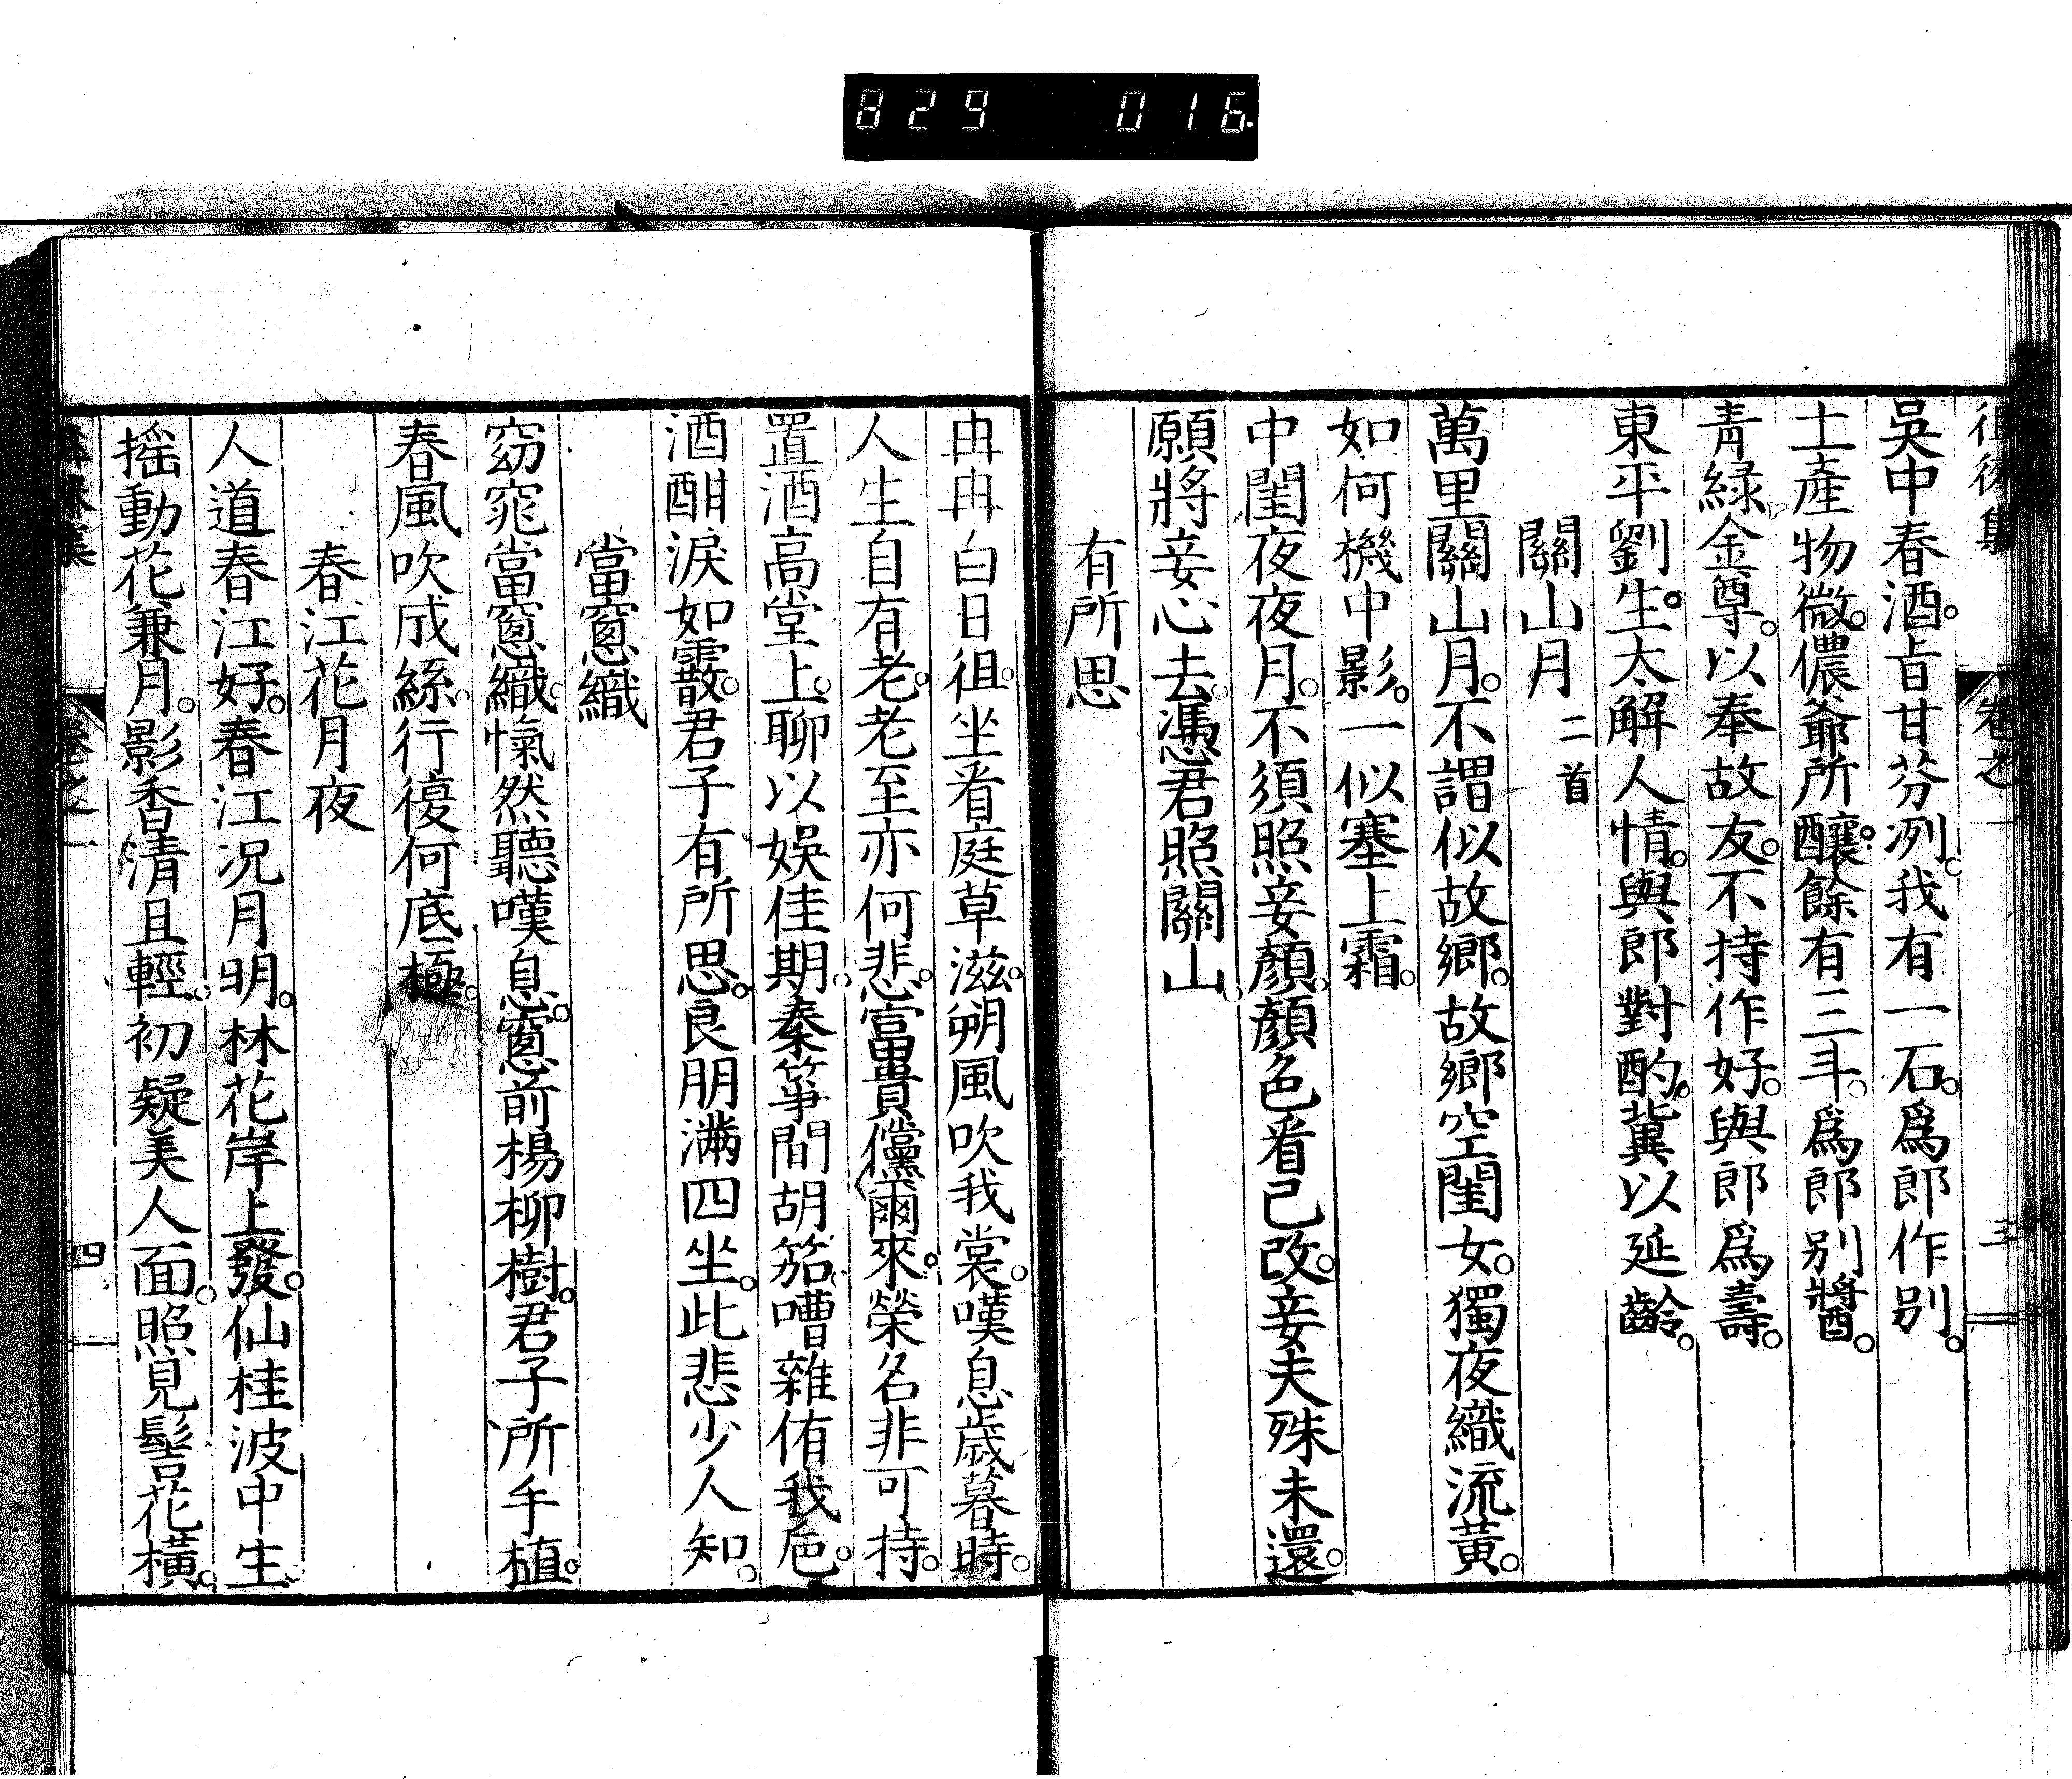 829 016
徂徠集 卷之一 三
吳中春酒。旨甘芬冽。我有一石。爲郎作別。
土產物微。儂爺所釀。餘有三斗。爲郎別醬。
青綠金尊。以奉故友。不持作好。與郎爲壽。
東平劉生。太解人情。與郎對酌。冀以延齡。
關山月 二首
萬里關山月。不謂似故鄉。故鄉空閨女。獨夜織流黃。
如何機中影。一似塞上霜。
中閨夜夜月。不須照妾顏。顏色看已改。妾夫殊未還。
願將妾心去。憑君照關山。
有所思
冉冉白日徂。坐看庭草滋。朔風吹我裳。嘆息歲暮時。
人生自有老。老至亦何悲。富貴儻爾來。榮名非可持。
置酒高堂上。聊以娛佳期。秦箏間胡笳。嘈雜侑我卮。
酒酣淚如霰。君子有所思。良朋滿四坐。此悲少人知。
當窻織
窈窕當窻織。愾然聽嘆息。窻前楊柳樹。君子所手植。
春風吹成絲。行復何底極。
春江花月夜
人道春江好。春江况月明。林花岸上發。仙桂波中生。
搖動花兼月。影香清且輕。初疑美人面。照見髻花橫。
徂徠集 卷之一 四